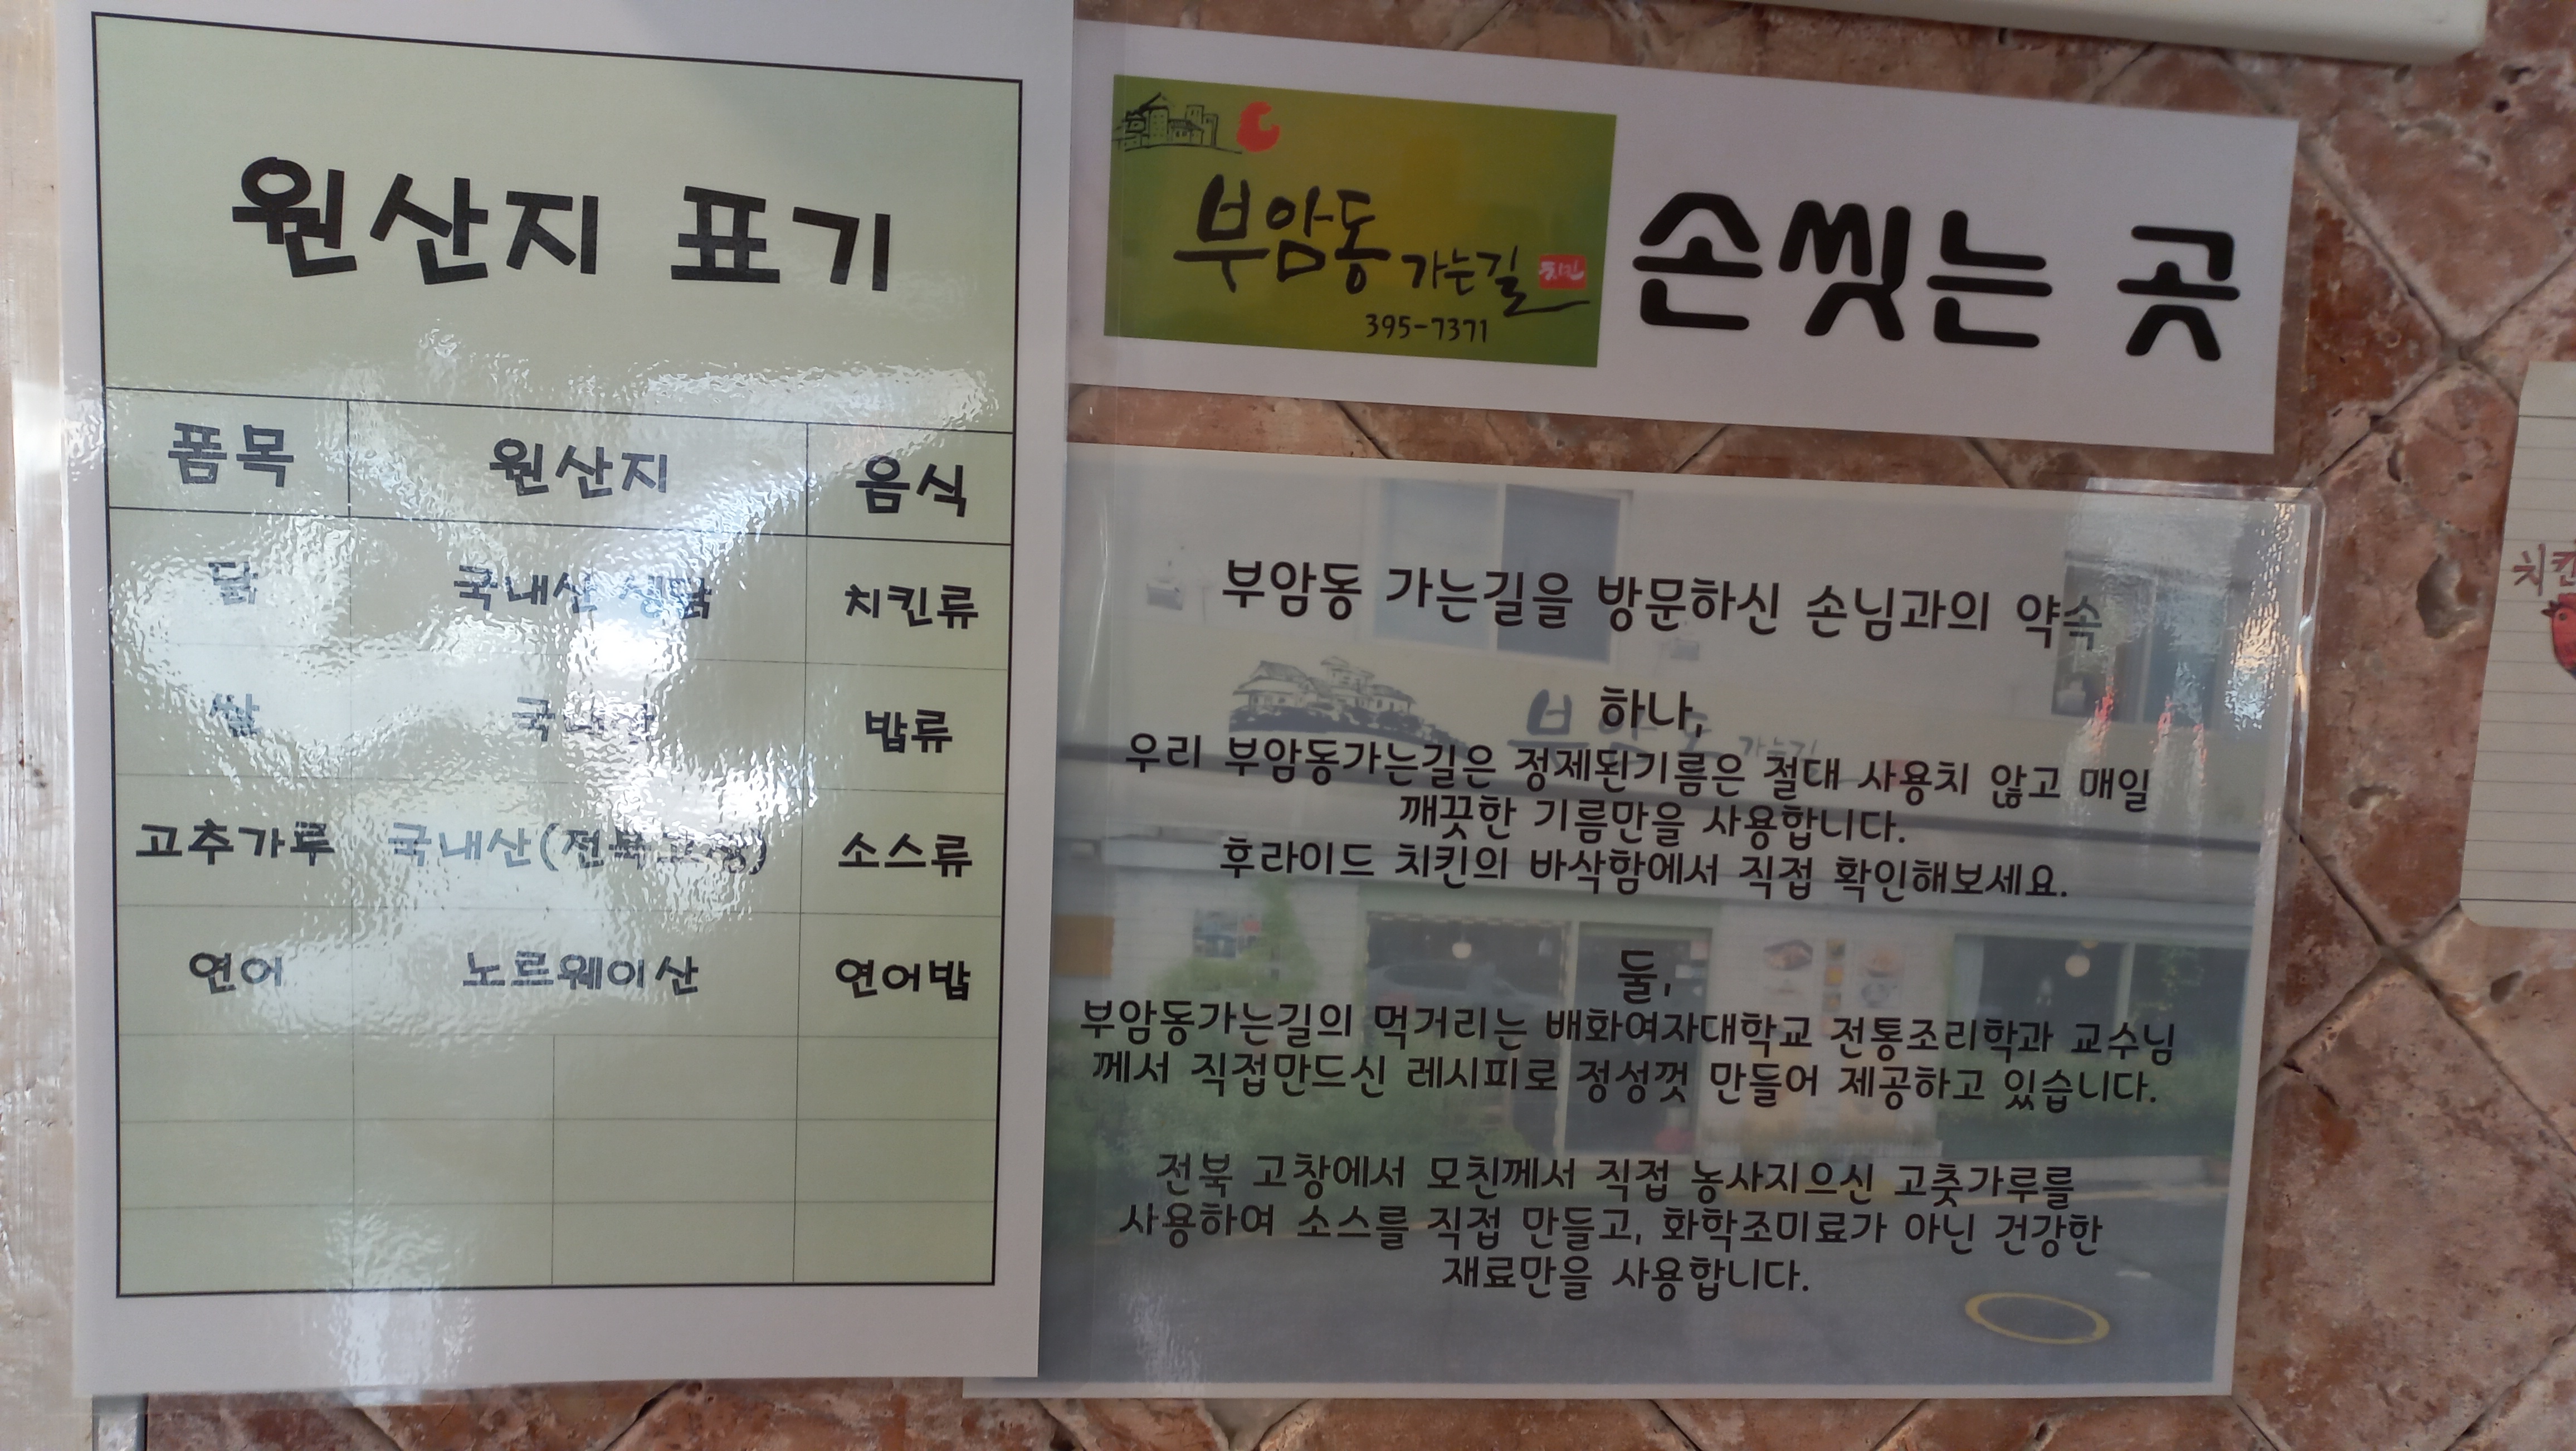 원산지 표기
품목 원산지 음식
닭 국내산 생닭 치킨류
쌀 국내산 밥류
고추가루 국내산(전북고창) 소스류
연어 노르웨이산 연어밥
부암동 가는길 치킨
395-7371
손씻는 곳
부암동 가는길을 방문하신 손님과의 약속
부암동 가는길
하나,
우리 부암동가는길은 정제된기름은 절대 사용치 않고 매일
깨끗한 기름만을 사용합니다.
후라이드 치킨의 바삭함에서 직접 확인해보세요.
둘,
부암동가는길의 먹거리는 배화여자대학교 전통조리학과 교수님
께서 직접만드신 레시피로 정성껏 만들어 제공하고 있습니다.
전북 고창에서 모친께서 직접 농사지으신 고춧가루를
사용하여 소스를 직접 만들고, 화학조미료가 아닌 건강한
재료만을 사용합니다.
치킨